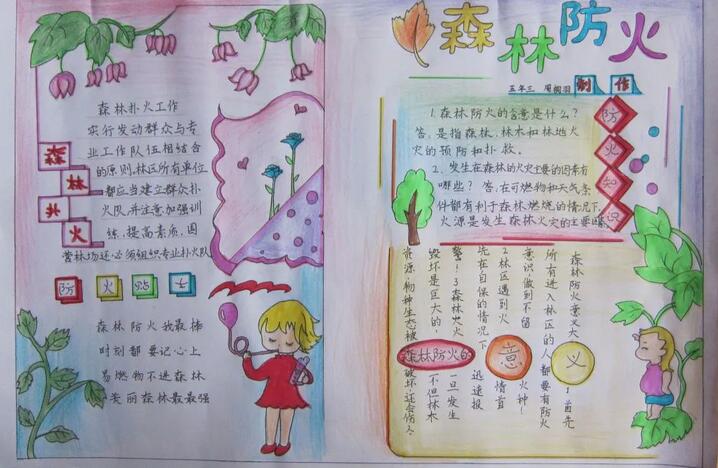 森林防火
五年三
制作
森林扑火工作
实行发动群众与专
业工作队伍相结合
的原则,林区所有单位
都应当建立群众扑
火队,并注意加强训
练,提高素质,国
营林场还必须组织专业扑火队
森林扑火
防火
士
森林防火我最棒
时刻都要记心上
易燃物不进森林
美丽森林最最强
1.森林防火的含意是什么?
答,是指森林,林木和林地火
灾的预防和扑救。
2、发生在森林的火灾主要的因素有
哪些? 答,在可燃物和天气条
件都有利于森林燃烧的情况下,
火源是发生森林火灾的主要
防火知识
森林防火的意义
森林防火意义大,1首先
所有进入林区的人都要有防火
意识,做到不留火种!
2林区遇到火情首
先在自保的情况下迅速报
警!3森林火一旦发生
毁坏是巨大的,不但林木
资源,物种生态被破坏,还会伤人